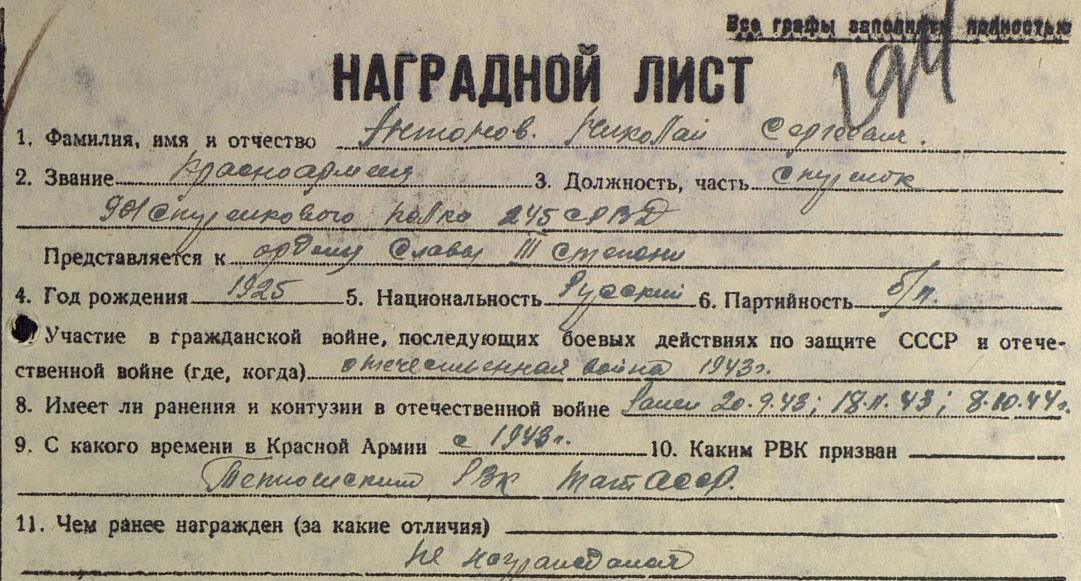 Все графы заполнять полностью
194
НАГРАДНОЙ ЛИСТ
1. Фамилия, имя и отчество Антонов. Николай Сергеевич.
2. Звание Красноармеец 3. Должность, часть Стрелок
901 стрелкового полка 245 СРВД
Представляется к ордену Славы III степени
4. Год рождения 1925 5. Национальность Русский 6. Партийность б/п.
Участие в гражданской войне, последующих боевых действиях по защите СССР и отече-
ственной войне (где, когда) отечественная война 1943г.
8. Имеет ли ранения и контузии в отечественной войне Ранен 20.9.43; 18.11.43; 8.10.44г.
9. С какого времени в Красной Армии с 1943г. 10. Каким РВК призван
Тетюшский РВК ТатАССР.
11. Чем ранее награжден (за какие отличия)
не награждался